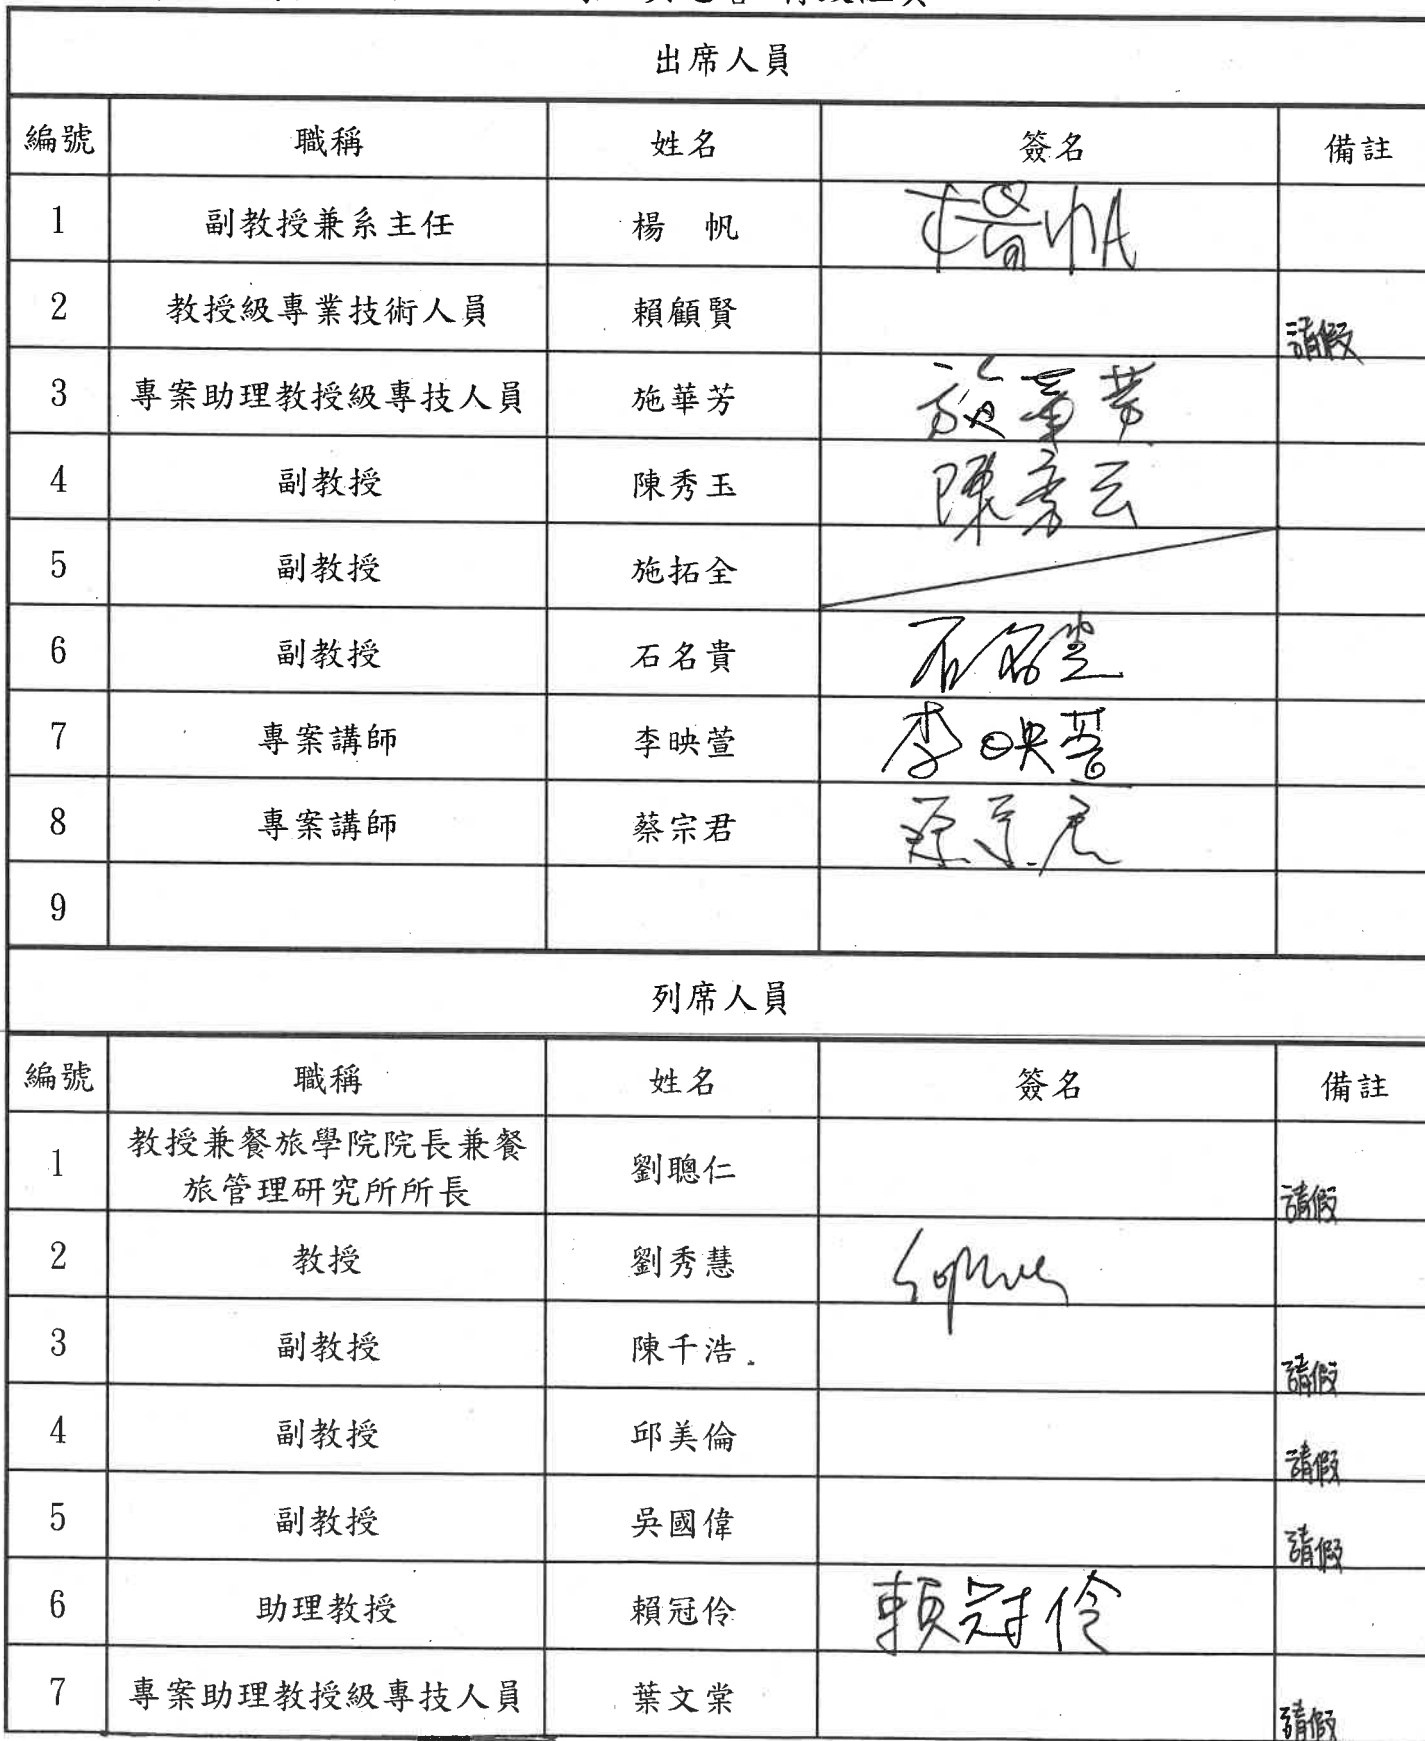 出席人員
編號 職稱 姓名 簽名 備註
1 副教授兼系主任 楊 帆 楊帆
2 教授級專業技術人員 賴顧賢 請假
3 專案助理教授級專技人員 施華芳 施華芳
4 副教授 陳秀玉 陳秀玉
5 副教授 施拓全
6 副教授 石名貴 石名貴
7 專案講師 李映萱 李映萱
8 專案講師 蔡宗君 蔡宗君
9
列席人員
編號 職稱 姓名 簽名 備註
1 教授兼餐旅學院院長兼餐
旅管理研究所所長 劉聰仁 請假
2 教授 劉秀慧
3 副教授 陳千浩 請假
4 副教授 邱美倫 請假
5 副教授 吳國偉 請假
6 助理教授 賴冠伶 賴冠伶
7 專案助理教授級專技人員 葉文棠 請假